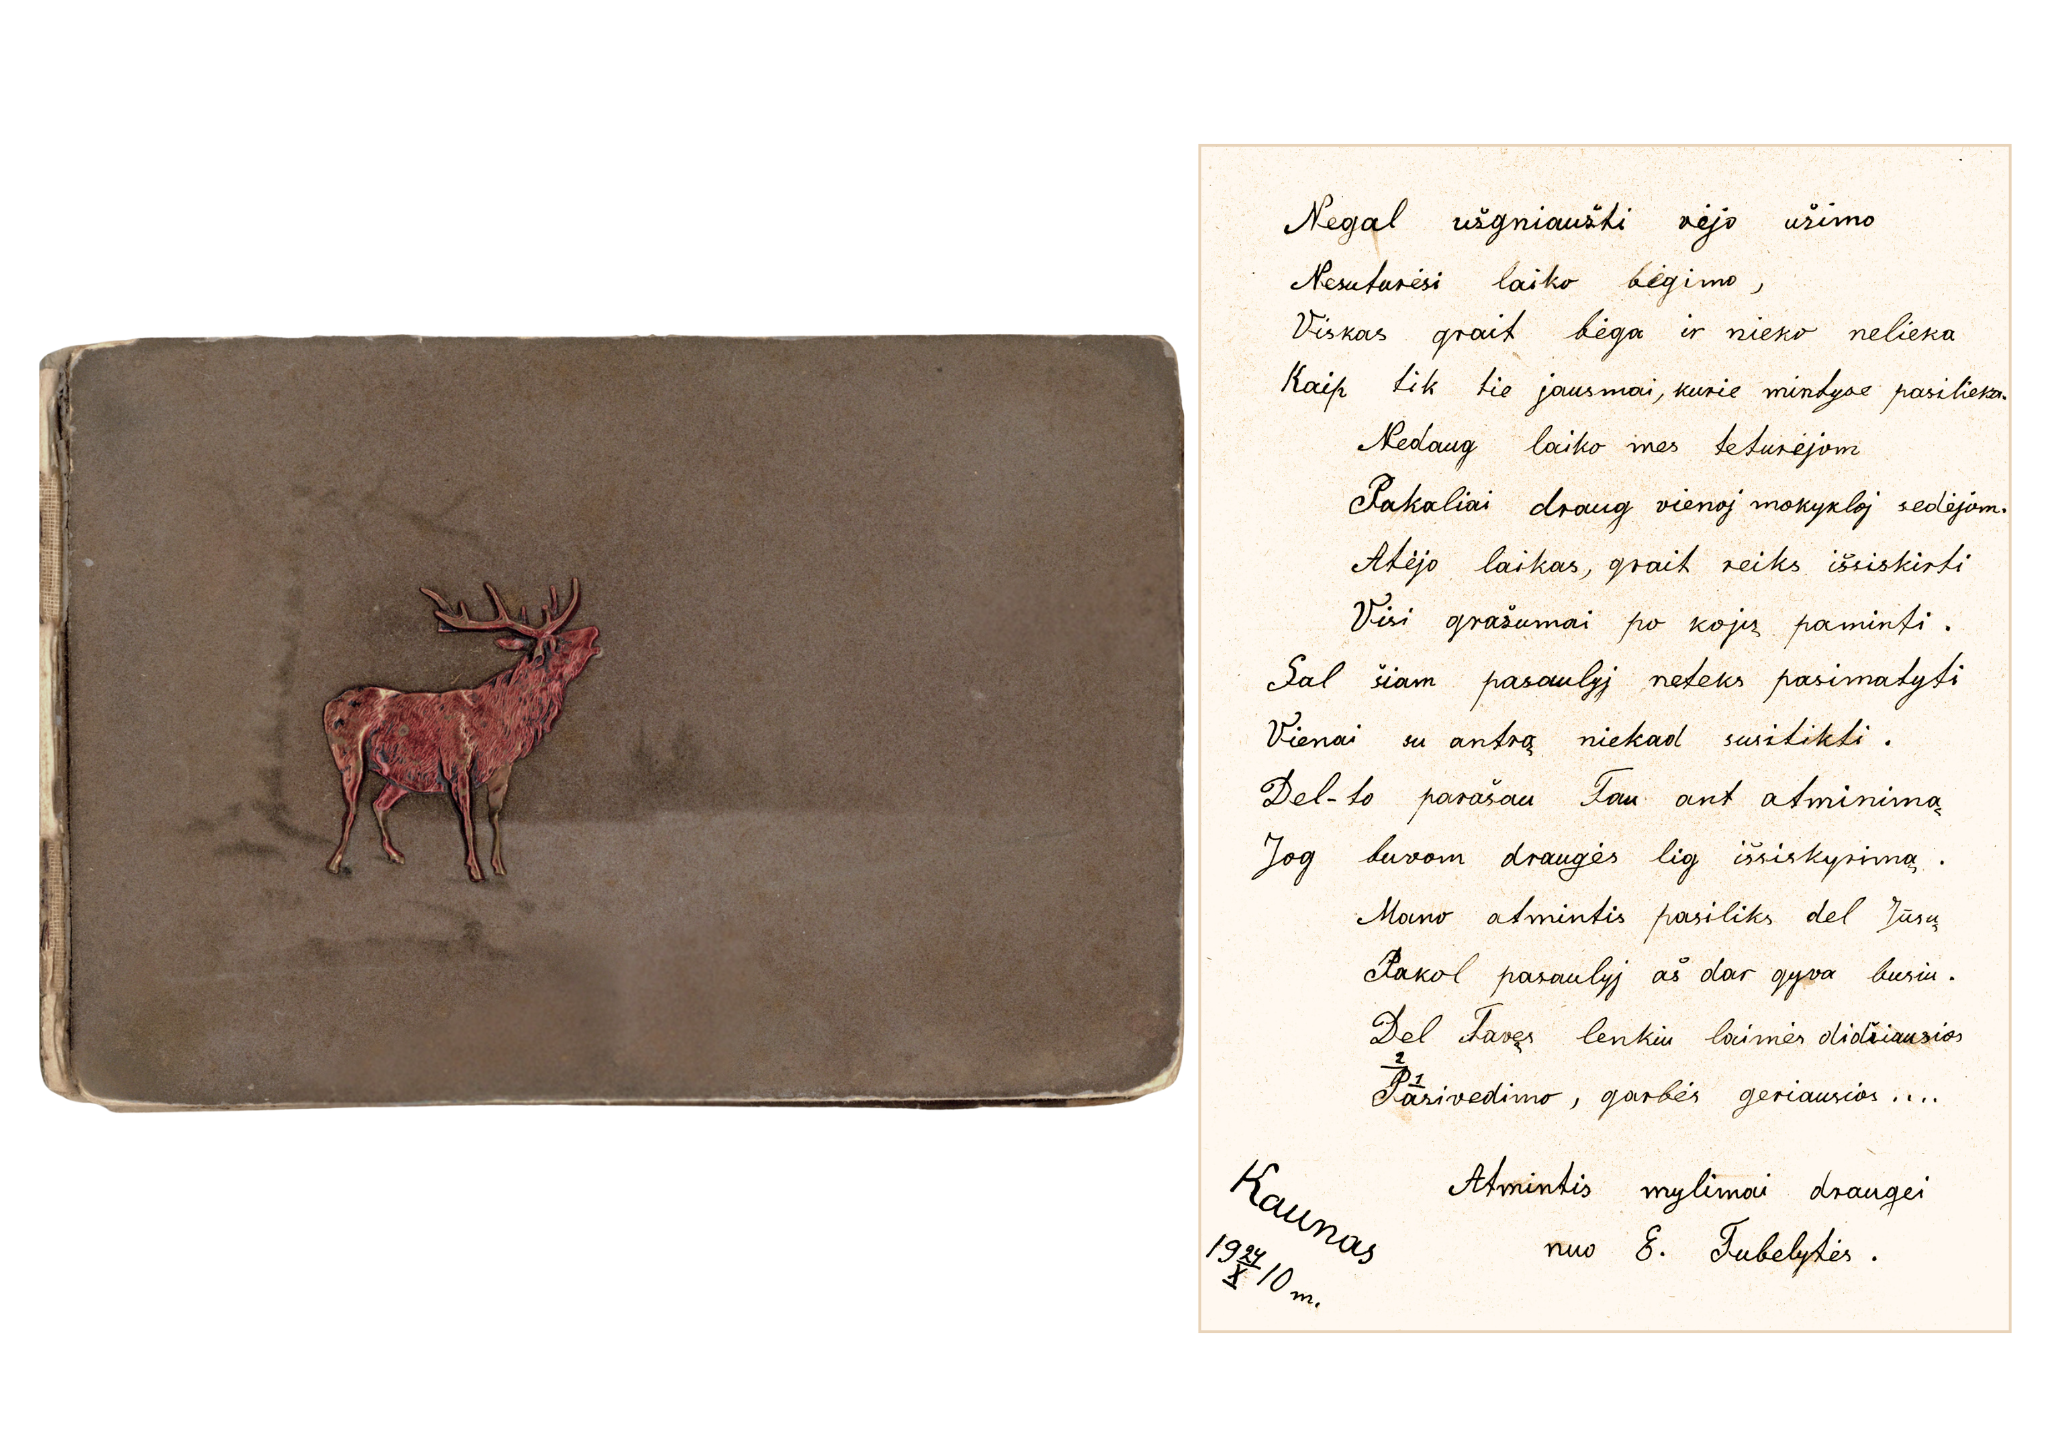 Negal ušgniaušti vėjo ušimo
Nesuturėsi laiko bėgimo,
Viskas grait bėga ir nieko nelieka
Kaip tik tie jausmai, kurie mintyse pasilieka.
Nedaug laiko mes teturėjom
Pakaliai draug vienoj mokykloj sedėjom.
Atėjo laikas, grait reiks išsiskirti
Visi grašumai po kojų paminti.
Gal šiam pasaulyj neteks pasimatyti
Vienai su antrą niekad susitikti.
Del-to parašau Tau ant atminimą
Jog buvom draugės lig išsiskyrimą.
Mano atmintis pasiliks del Jūsų
Pakol pasaulyj aš dar gyva busiu.
Del Tavęs lenkiu laimės didšiausios
2 1
Pasivedimo, garbės geriausios....
Atmintis mylimai draugei
nuo E. Tubelytės.
Kaunas
19 24/X 10 m.